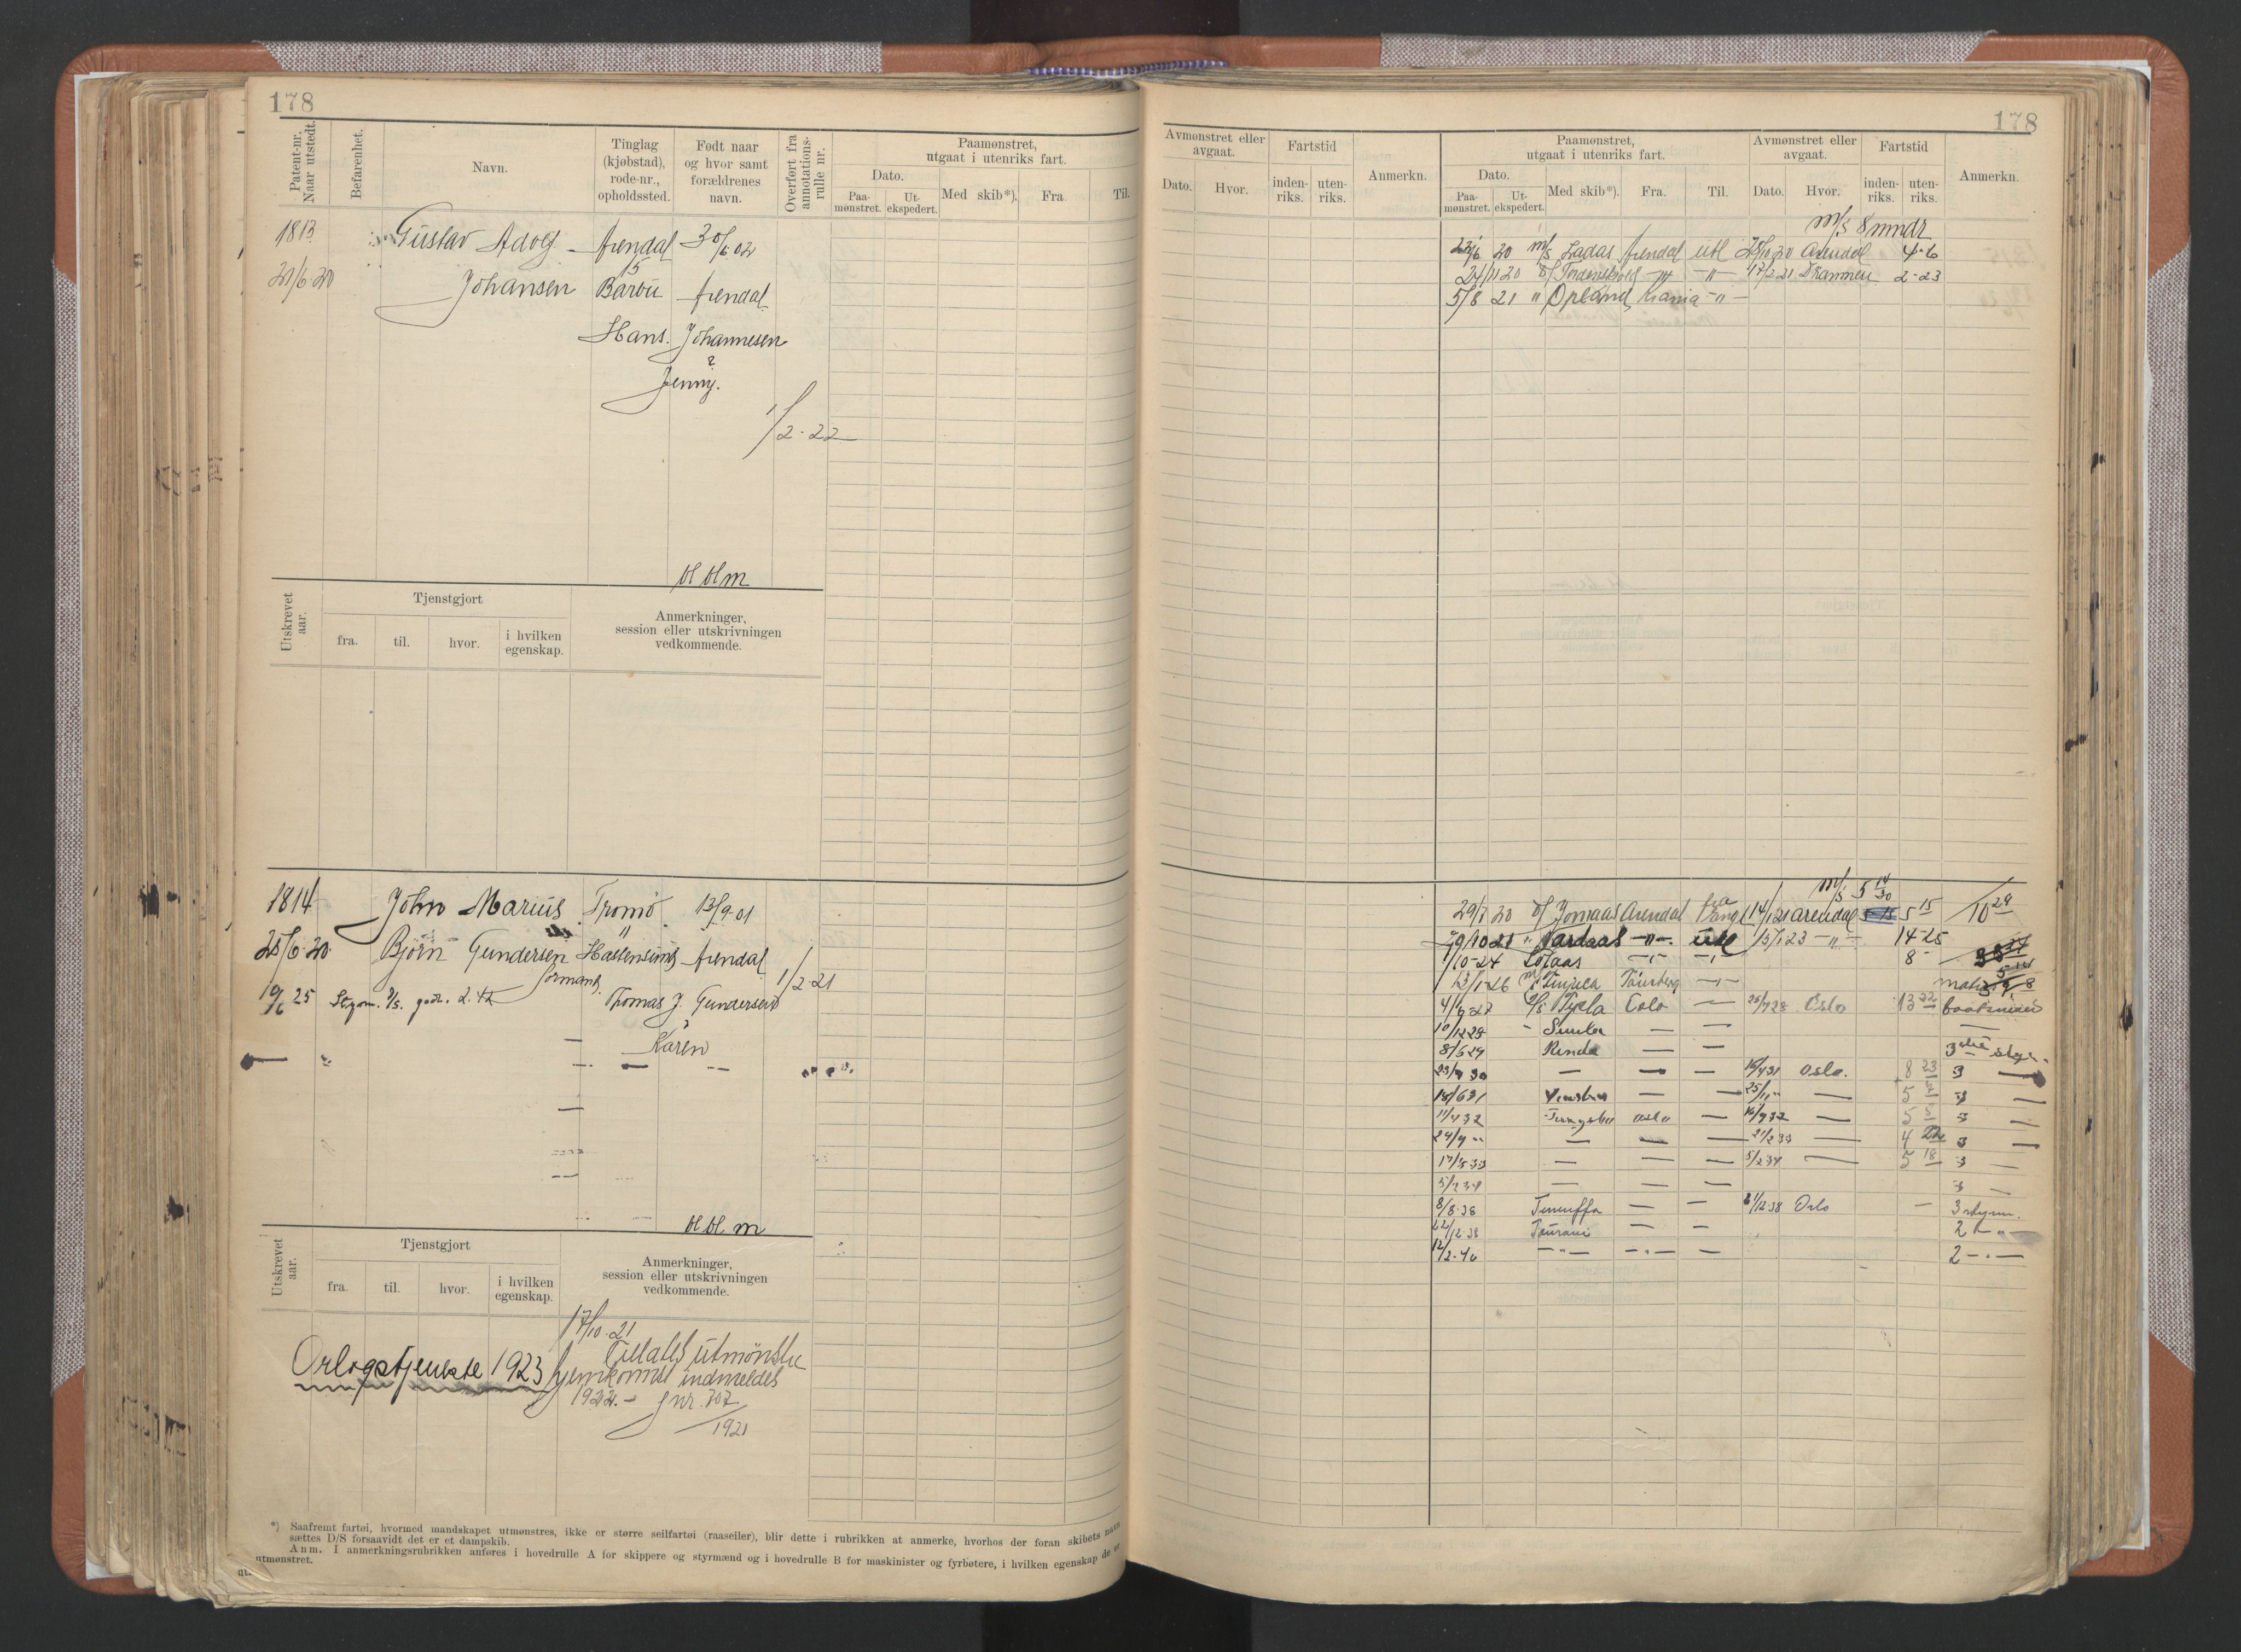 178
Patent-nr. Naar utstedt.
Befarenhet.
Navn.
Tinglag (kjøbstad), rode-nr., opholdssted.
Født naar og hvor samt forældrenes navn.
Overført fra annotations-rulle nr.
Paamønstret, utgaat i utenriks fart.
Dato.
Paa-mønstret.
Ut-ekspedert.
Med skib*).
Fra
Til.
1813 Gustav Adolf - Arendal 30/6 02
21/6-20 Johansen 15 Barbu Arendal
Hans Johannesen
?
Jenny.
1/2-22
Utskrevet aar.
Tjenstgjort
fra.
til.
hvor.
i hvilken egenskap.
Anmerkninger, session eller utskrivningen vedkommende.
1814 John Marius Tromö 13/9-01
25/6-20 Björn Gundersen Arendal
1/2-21
19/6 25 Thomas J. Gundersen
Karen
Utskrevet aar.
Tjenstgjort
fra.
til.
hvor.
i hvilken egenskap.
Anmerkninger, session eller utskrivningen vedkommende.
17/10-21
Tillates utmönstre
Orlogstjeneste 1923 hjemkomst indmeldes
1922. - jnr. 707
1921
*) Saafremt fartøi, hvormed mandskapet utmønstres, ikke er større seilfartøi (raaseiler), blir dette i rubrikken at anmerke, hvorhos der foran skibets navn
sættes D/S forsaavidt det er et dampskib.
Anm. I anmerkningsrubrikken anføres i hovedrulle A for skippere og styrmænd og i hovedrulle B for maskinister og fyrbøtere, i hvilken egenskap de er
utmønstret.
178
Avmønstret eller avgaat.
Dato.
Hvor.
Fartstid
inden-riks.
uten-riks.
Anmerkn.
Paamønstret, utgaat i utenriks fart.
Dato.
Paa-mønstret.
Ut-ekspedert.
Med skib*).
Fra.
Til.
Avmønstret eller avgaat.
Dato.
Hvor.
Fartstid
inden-riks.
uten-riks.
Anmerkn.
m/s 8 mndr
20 m/s Ladas Arendal utl Arendal 4-6
24/11 20 Tordenskjold 17/2 21 Drammen 2-23
5/8 21 " Opland Krania -"-
m/s 5
29/7 20 Jomaas Arendal 14/1 21 Arendal 5 15
Vardaas -"- utl 15/1 23 -"- 14-25
1/10-24 8 -
13/1-26 Tönsberg
Oslo Oslo 13 22
10/12 28 Simla
8/5 29 Render
23/9 30 Oslo. 8 23 3
18/6 31 3
11/4 32 Oslo 16/9 32 3
24/9 21/2 33 3
17/8 33 5/2 34 5 18 3
5/2 34 3
8/8-38 Teneriffa 21/12 38 Oslo 3 styrm.
22/12-38 Touraine 2 -"-
12/2-40 -"- -"- 2 -"-